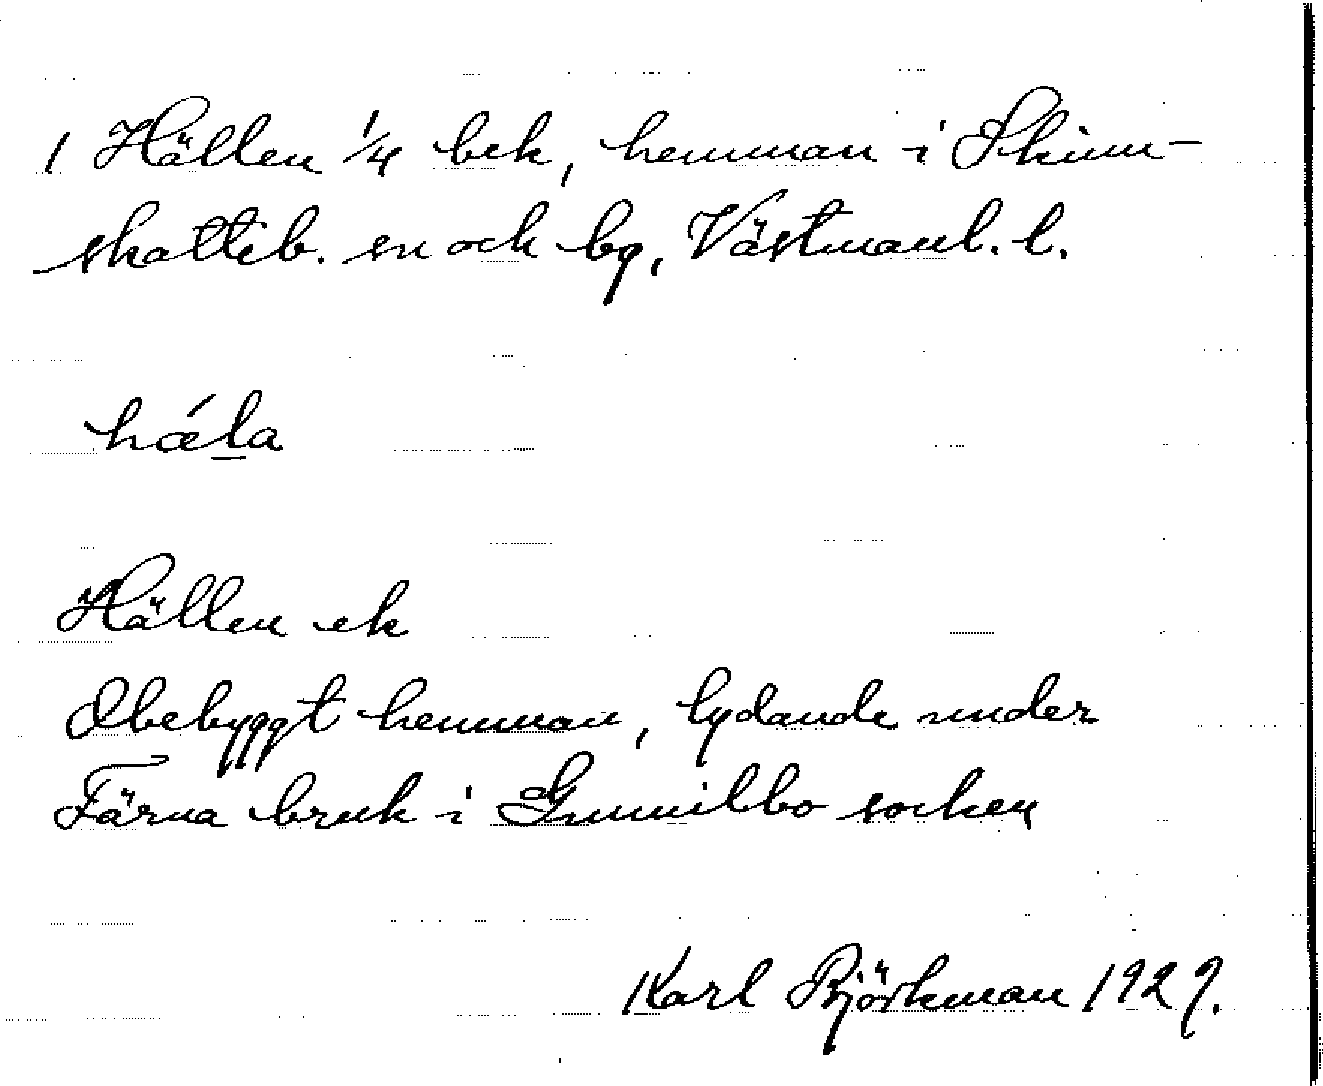 1 Hällen 1/4 bek, hemman i Skinn-
skatteb. sn och bg, Västmanl. l.
hǽla
Hällen ek
Obebyggt hemman, lydande under
Färna bruk i Gunnilbo socken
Karl Björkman 1929.